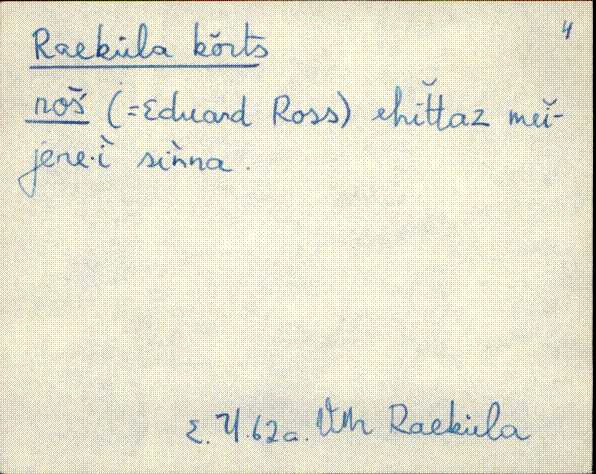 4
Raeküla kõrts
roš̆ (=Eduard Ross) ehit̆taz mei̯-
jere·ì siǹna.
E. Ü. 62a. VMr Raeküla